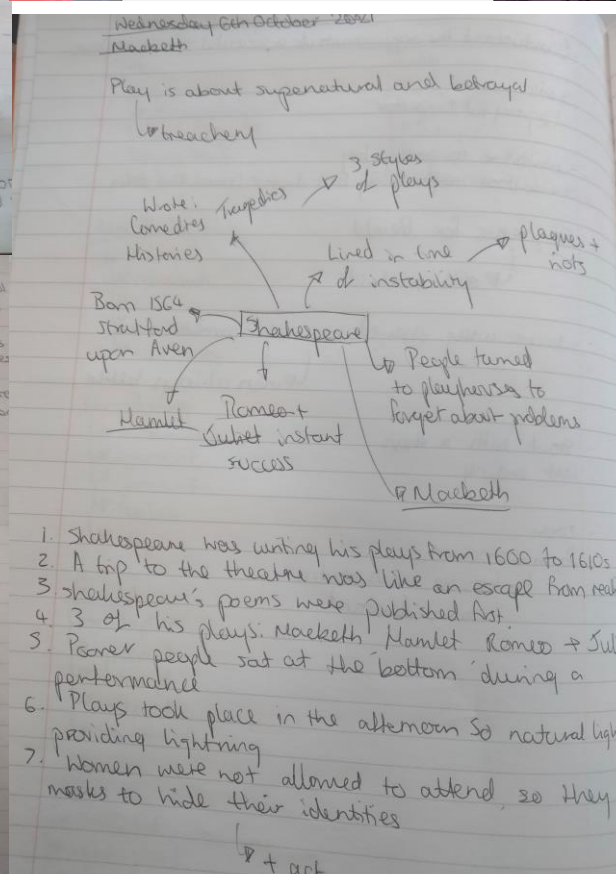 Wednesday 6th October 2021
Macbeth
Play is about supernatural and betrayal
treachery
3 styles
of plays
Wrote: Tragedies
Comedies
Histories
Lived in time
of instability
plagues +
riots
Born 1564
Stratford
upon Aven
Shakespeare
People turned
to playhouses to
forget about problems
Hamlet
Romeo +
Juliet instant
success
Macbeth
1. Shakespeare was writing his plays from 1600 to 1610s
2. A trip to the theatre was like an escape from real
3. Shakespear's poems were published first.
4. 3 of his plays: Macbeth Hamlet Romeo + Jul
5. Poorer people sat at the bottom during a
performance
6. Plays took place in the afternoon so natural ligh
providing lightning
7. Women were not allowed to attend, so they
masks to hide their identities
+ act